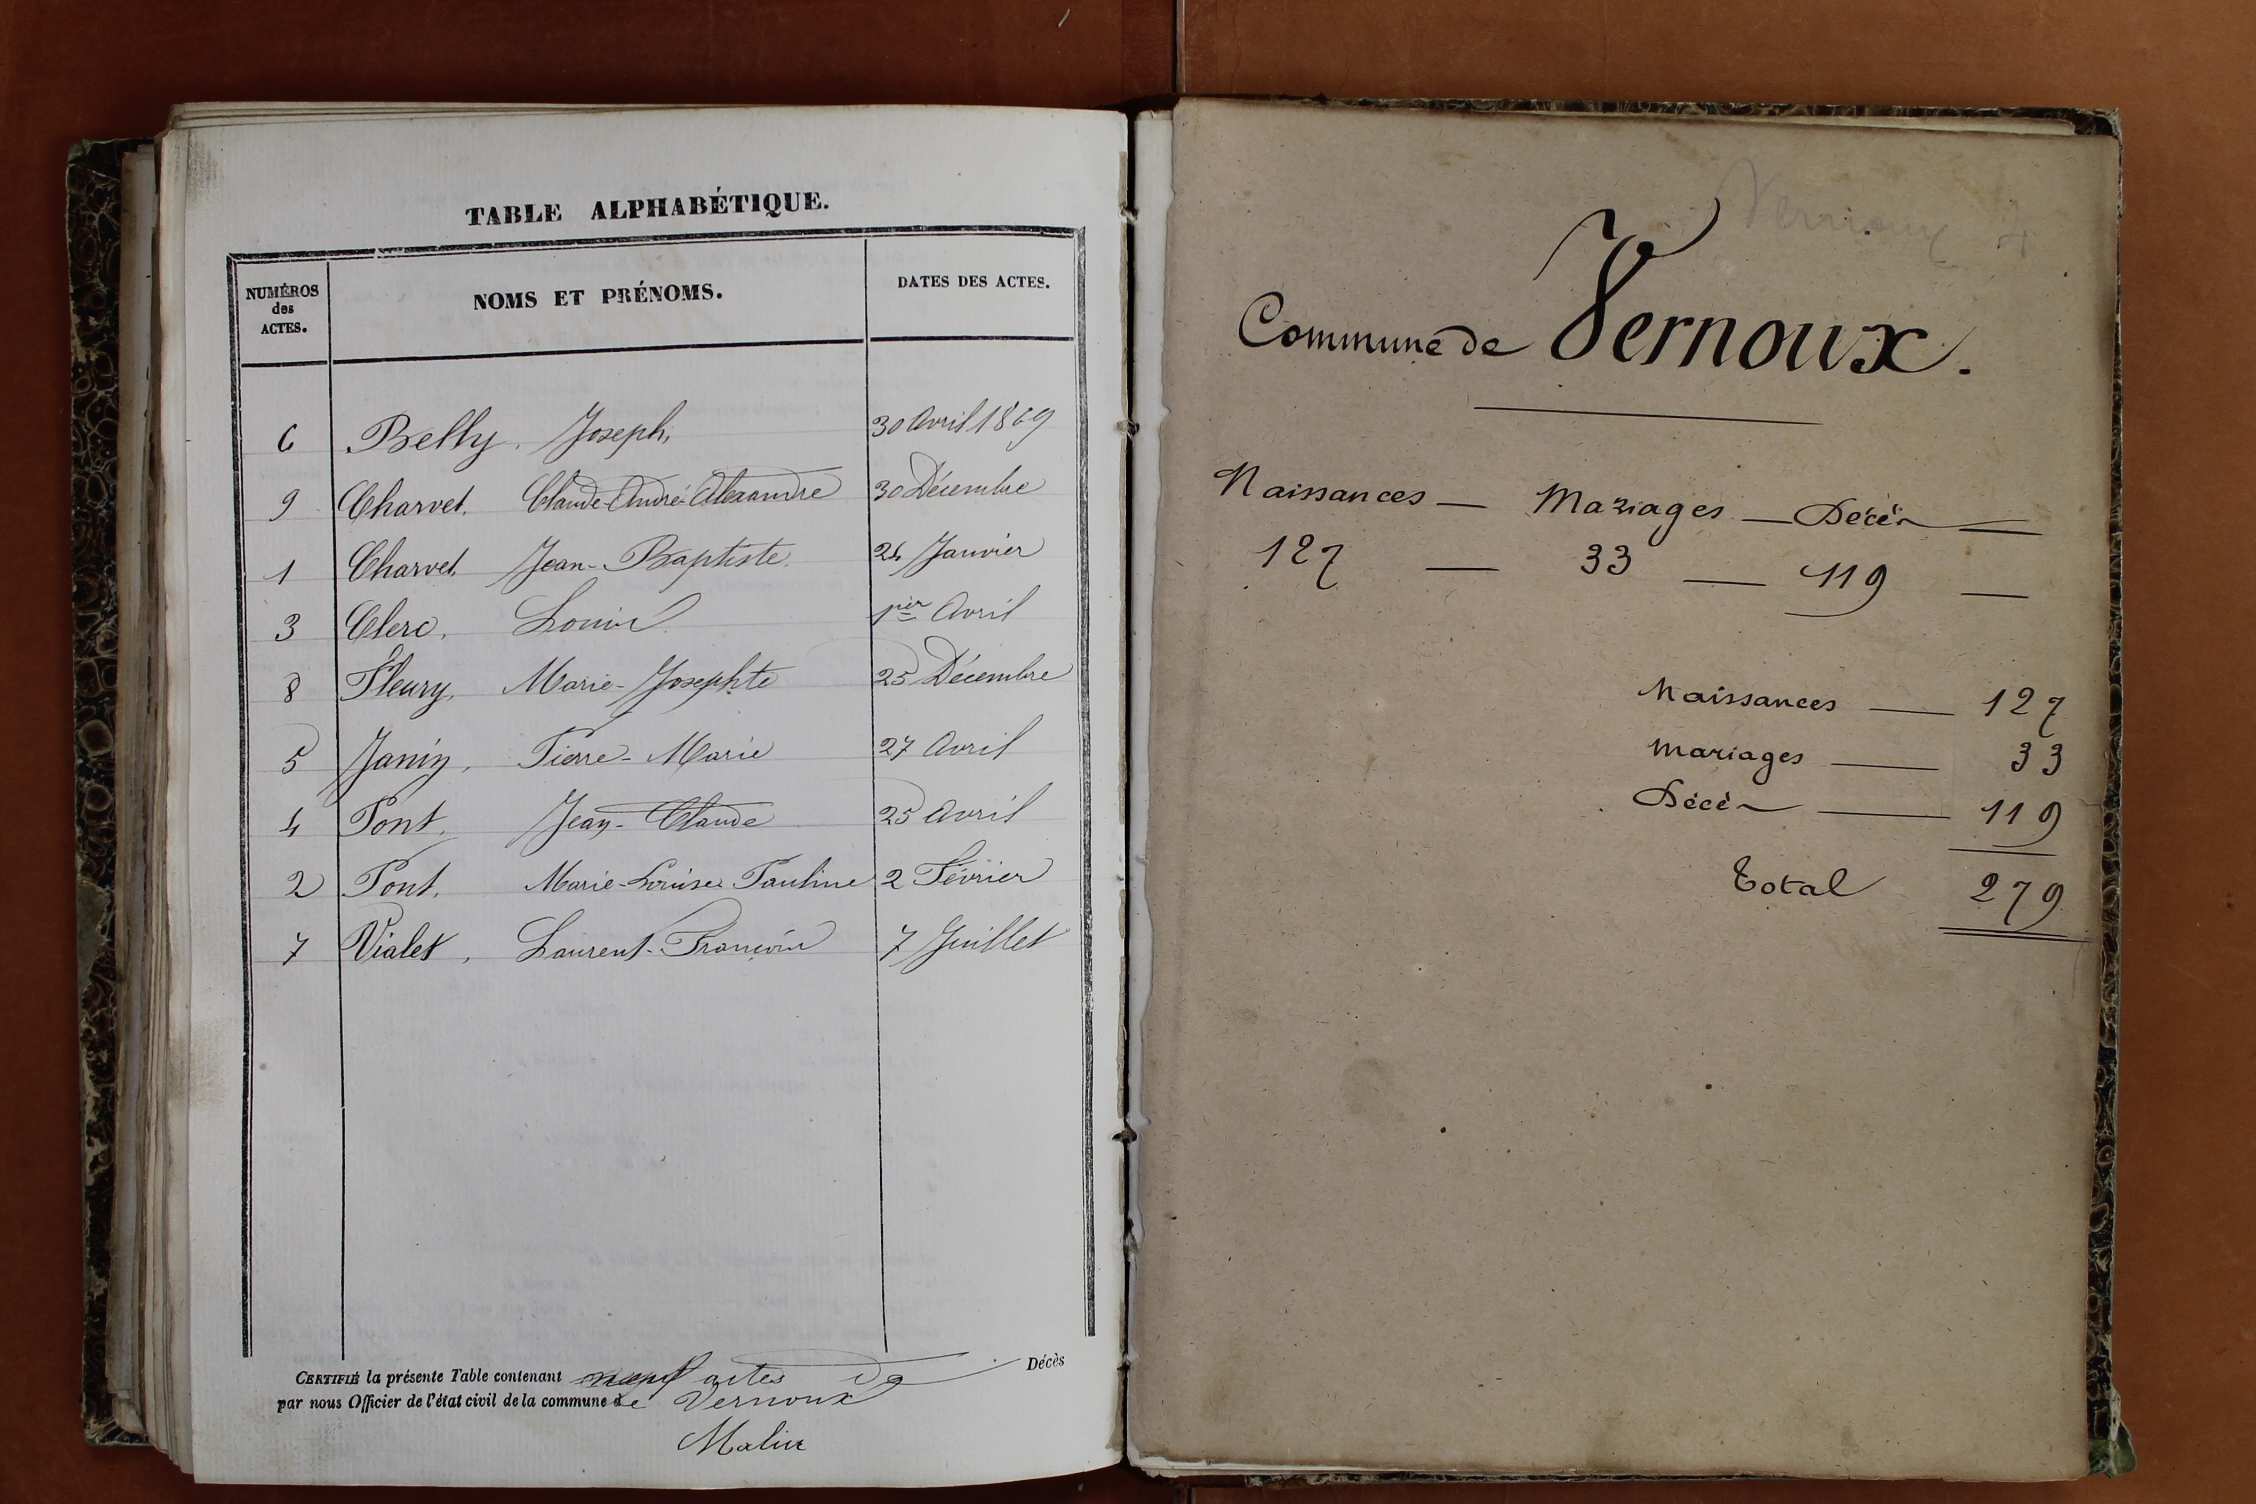 TABLE ALPHABÉTIQUE.
NUMÉROS des ACTES. NOMS ET PRÉNOMS. DATES DES ACTES.
6 Belly, Joseph, 30 Avril 1869
9 Charvet. Claude-André-Alexandre 30 Décembre
1 Charvet. Jean-Baptiste. 24 Janvier
3 Clerc, Louis 1er Avril
8 Fleury, Marie-Josephte 25 Décembre
5 Janin, Pierre-Marie 27 Avril
4 Pont, Jean-Claude 25 Avril
2 Pont, Marie-Louise Pauline 2 Février
7 Vialet, Laurent-François 7 Juillet
CERTIFIÉ la présente Table contenant neuf actes de Décès
par nous Officier de l'état civil de la commune de Vernoux
Vernoux
Commune de Vernoux.
Naissances — Mariages — Décès —
127 — 33 — 119 —
Naissances — 127
Mariages — 33
Décès — 119
Total 279